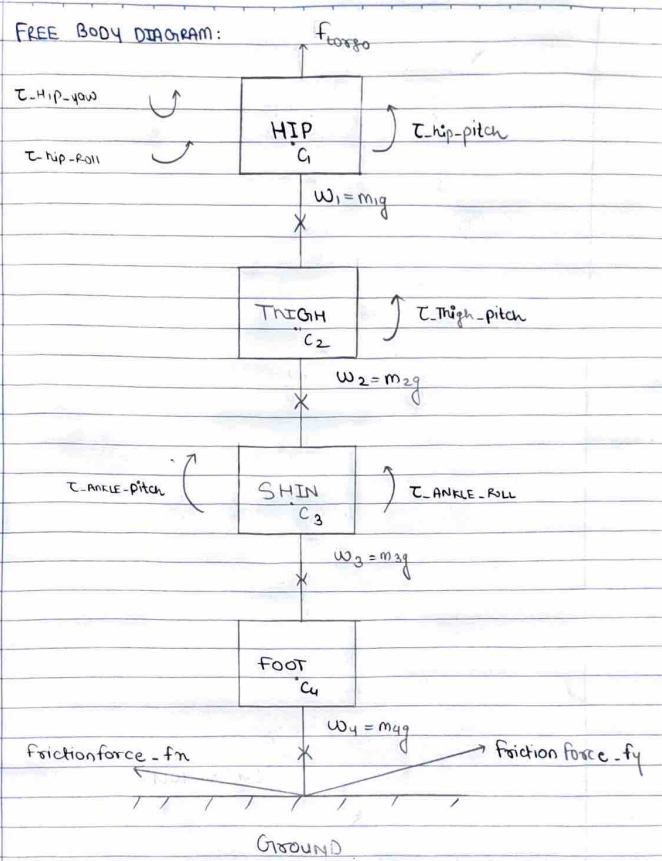 FREE BODY DIAGRAM:
f_torso
τ_Hip_yaw
HIP
C1
τ_hip-pitch
τ_hip_Roll
W1 = m1g
THIGH
C2
τ_Thigh_pitch
W2 = m2g
τ_ANKLE_pitch
SHIN
C3
τ_ANKLE_ROLL
W3 = m3g
FOOT
C4
W4 = m4g
Frictionforce_fx
Friction force_fy
GROUND